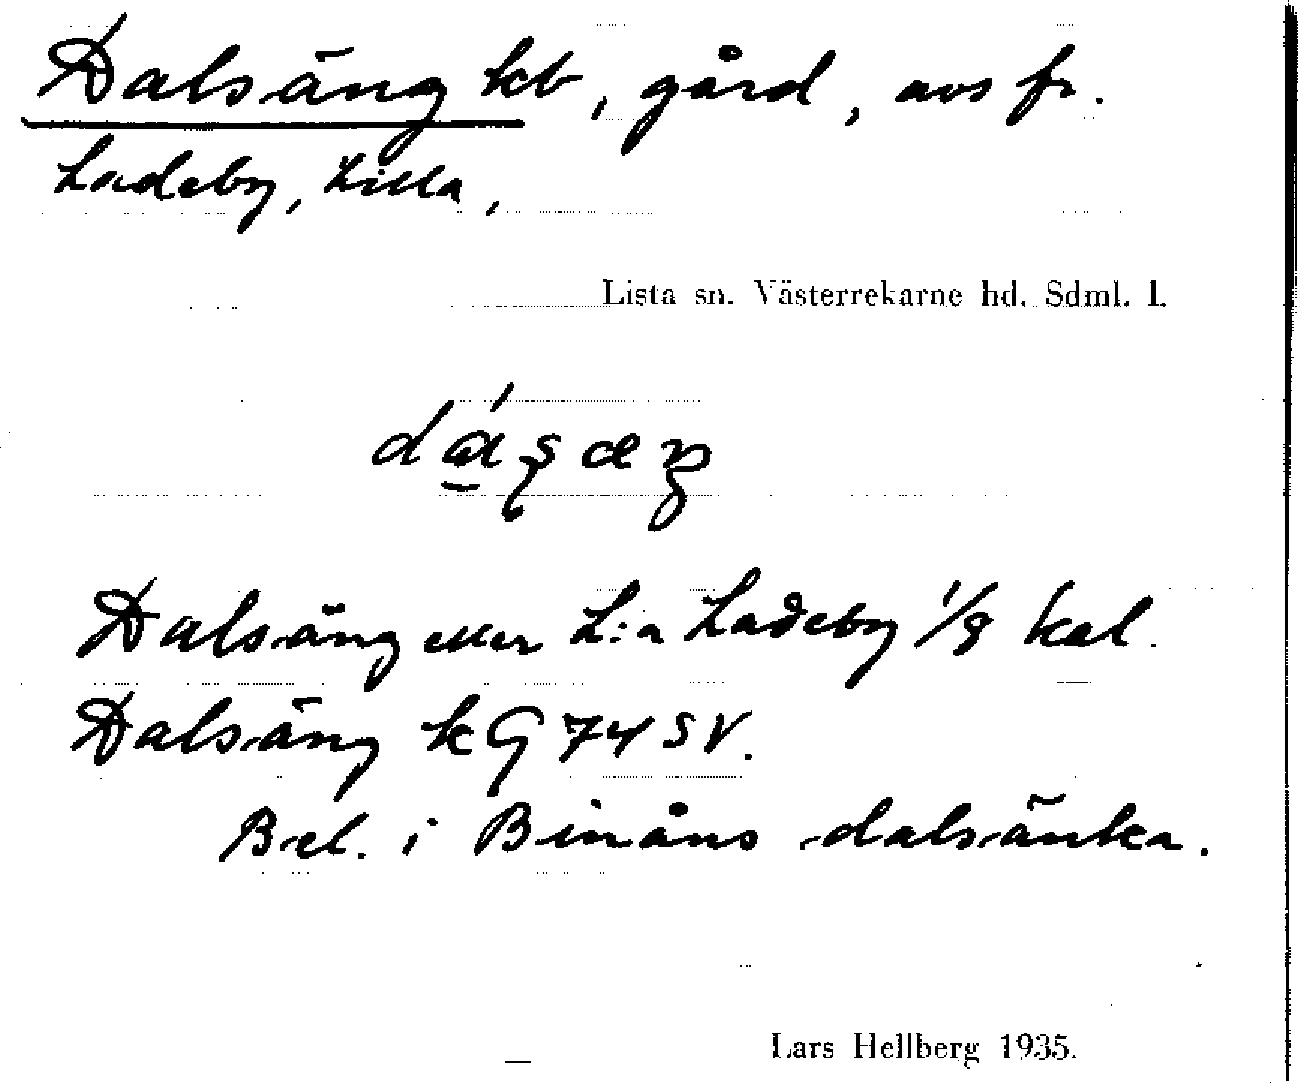 Dalsäng kb, gård, avs fr.
Ladeby, Lilla,
Lista sn. Västerrekarne hd. Sdml. l.
Dalsäng eller L:a Ladeby 1/8 kal.
Dalsäng k G 74 SV.
Bel. i Binåns dalsänka.
Lars Hellberg 1935.